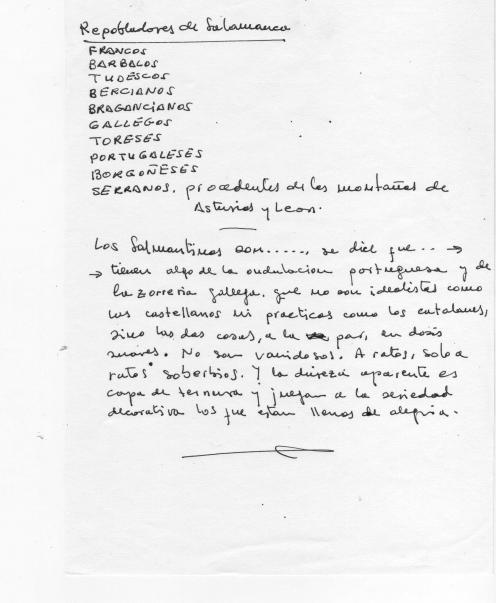 Repobladores de Salamanca
FRANCOS
BARBALOS
TUDESCOS
BERCIANOS
BRAGANCIANOS
GALLEGOS
TORESES
PORTUGALESES
BORGOÑESES
SERRANOS. procedentes de las montañas de
Asturias y Leon.
Los Salmantinos son......, se dice que... →
→ tienen algo de la ondulacion portuguesa y de
la zorreria gallega. que no son idealistas como
los castellanos ni practicos como los catalanes,
sino las dos cosas, a la par, en dosis
suaves. No son vanidosos. A ratos, solo a
ratos soberbios. Y la dureza aparente es
capa de ternura y juegan a la seriedad
decorativa los que estan llenos de alegria.